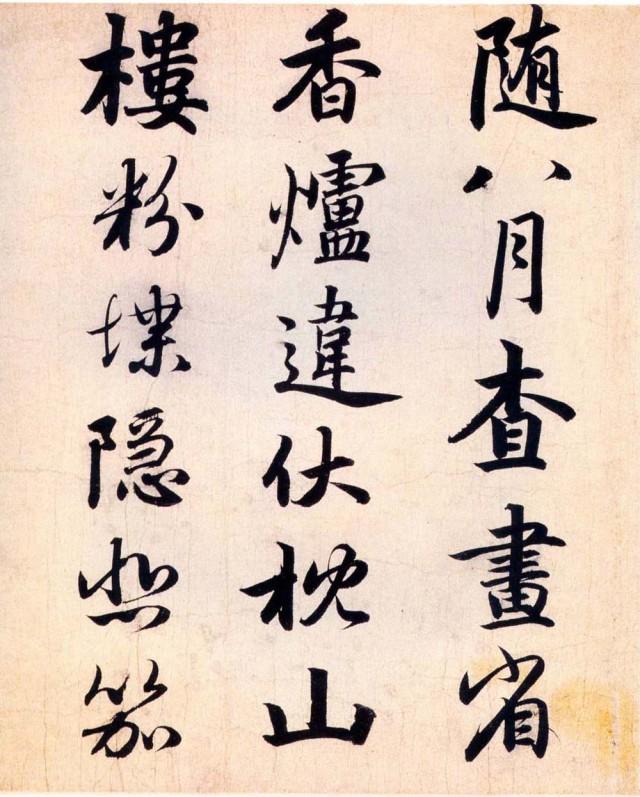 随八月查畫省
香爐違伏枕山
樓粉堞隐悲笳